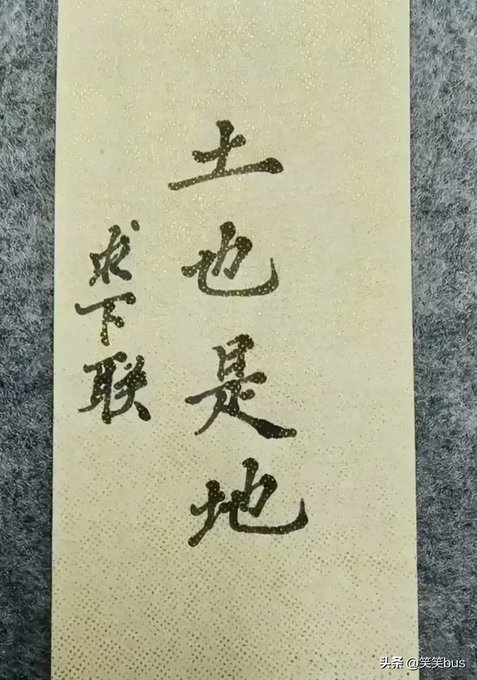 土也是地
求下联
头条 @笑笑bus